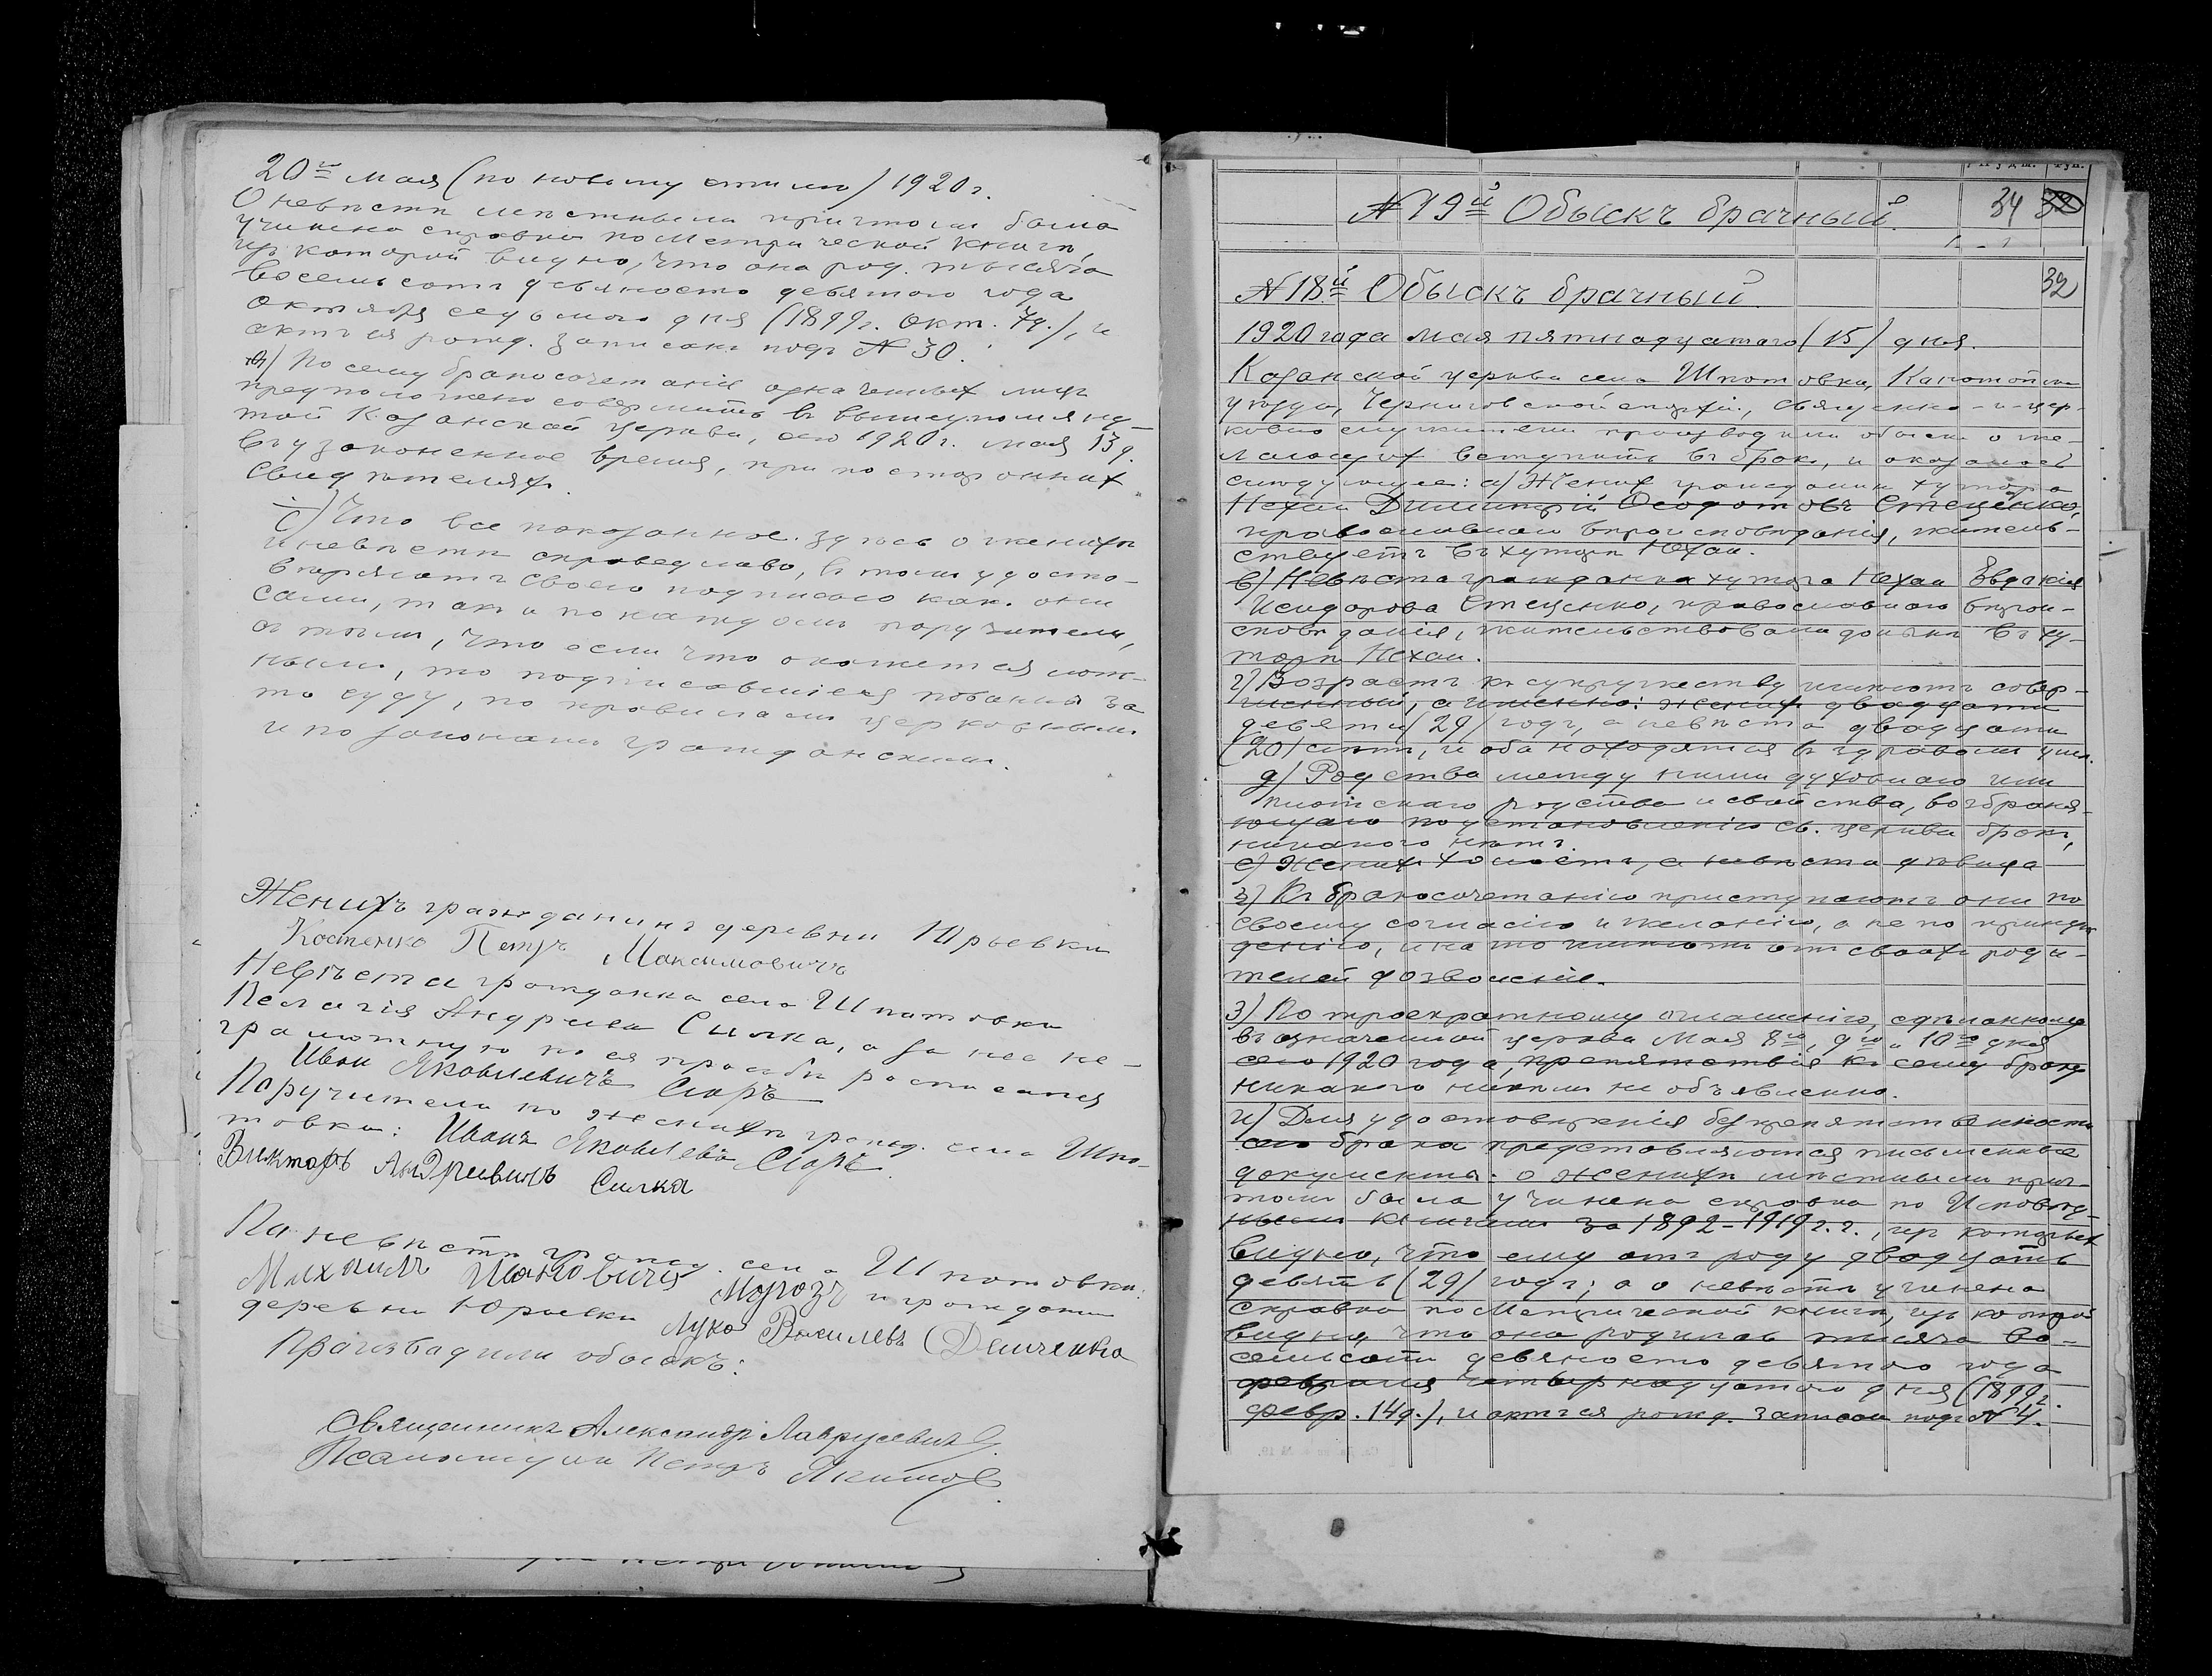 20й мая (по новому стилю) 1920 г.
О невѣстѣ мѣстнымъ причтомъ была
учинена справка по Метрической книгѣ,
изъ которой видно, что она род. тысяча
восемьсотъ девяносто девятого года
октября седьмого дня (1899 г. Окт. 7 д.), и
актъ ея рожд. записанъ подъ № 30.
По сему бракосочетаніе означенныхъ лицъ
предположено совершить въ вышеупомяну-
той Казанской церкви, сего 1920 г. мая 13 д.
въ узаконенное время, при постороннихъ
свидѣтеляхъ.
і) Что все показанное здѣсь о женихѣ
и невѣстѣ справедливо, въ томъ удосто-
вѣряютъ своею подписью какъ они
сами, такъ и по каждомъ поручители,
съ тѣмъ, что если что окажется лож-
нымъ, то подписавшіеся повинны за
то суду, по правиламъ церковнымъ
и по законамъ гражданскимъ.
Женихъ гражданинъ деревни Юрьевки
Костенко Петръ Максимовичъ
Невѣста гражданка села Шпотовки
Пелагія Андреева Силка, а за нее не-
грамотную по ея просьбѣ росписался
Иванъ Яковлевичъ Сюръ
Поручители по женихѣ гражд. села Шпо-
товки: Иванъ Яковлевъ Сюръ
Викторъ Андреевичъ Силка
По невѣстѣ гражд. села Шпотовки:
Михаилъ Ивановичъ Морозъ и гражданин
деревни Юрьевки Лука Василевъ Демченко
Производили обыскъ:
Священникъ Александръ Лаврусевичъ
Псаломщикъ Петръ Якимов
№ 19й Обыскъ брачный. 34
№ 18й Обыскъ брачный. 32
1920 года мая пятнадцатаго (15) дня.
Казанской церкви села Шпотовки, Конотопск
уѣзда, Черниговской епархіи, священно-и-цер-
ковно служители производили обыскъ о же-
лающихъ вступить въ бракъ, и оказалось
слѣдующее: а) Женихъ гражданин хутора
Нехаи Димитрій Ѳеодотовъ Стеценко,
православнаго вѣроисповѣданія, житель-
ствуетъ въ хуторѣ Нехаи.
в) Невѣста гражданка хутора Нехаи Евдокія
Исидорова Стеценко, православнаго вѣрои-
сповѣданія, жительствовала донынѣ въ ху-
торѣ Нехаи.
г) Возрастъ къ супружеству имѣютъ совер-
шенный, а именно: женихъ двадцати
девяти (29) годъ, а невѣста двадцати
(20) лѣтъ, и оба находятся въ здравомъ умѣ.
д) Родства между ними духовнаго или
плотскаго родства и свойства, возбраня-
ющаго по установленію св. церкви бракъ,
никакого нѣтъ.
е) Женихъ холостъ, а невѣста дѣвица
з) Къ бракосочетанію приступаютъ они по
своему согласію и желанію, а не по принуж
денію, и на то имѣютъ отъ своихъ роди-
телей дозволеніе.
З) По троекратному оглашенію, сдѣланному
въ означенной церкви Мая 8го, 9го и 10го дня
сего 1920 года, препятствія къ сему браку
никакого никѣмъ не объявлено.
и) Для удостовѣренія безпрепятственности
сего брака представляются письменные
документы: о женихѣ мѣстнымъ прич-
томъ была учинена справка по Исповѣд-
нымъ книгамъ за 1892-1919 г.г., изъ которыхъ
видно, что ему отъ роду двадцать
девять (29) годъ; а о невѣстѣ учинена
справка по Метрической книгѣ, изъ которой
видно, что она родилась тысяча во-
семьсотъ девяносто девятого года
февраля четырнадцатого дня (1899 г.
февр. 14 д.), и актъ ея рожд. записан подъ № 4.